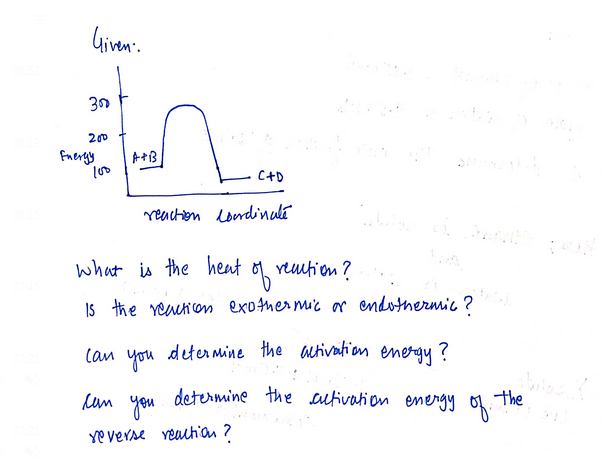 Given:.
300
200
Energy
A+B
100
C+D
reaction coordinate
What is the heat of reaction?
Is the reaction exothermic or endothermic?
Can you determine the activation energy?
Can you determine the activation energy of the
reverse reaction?